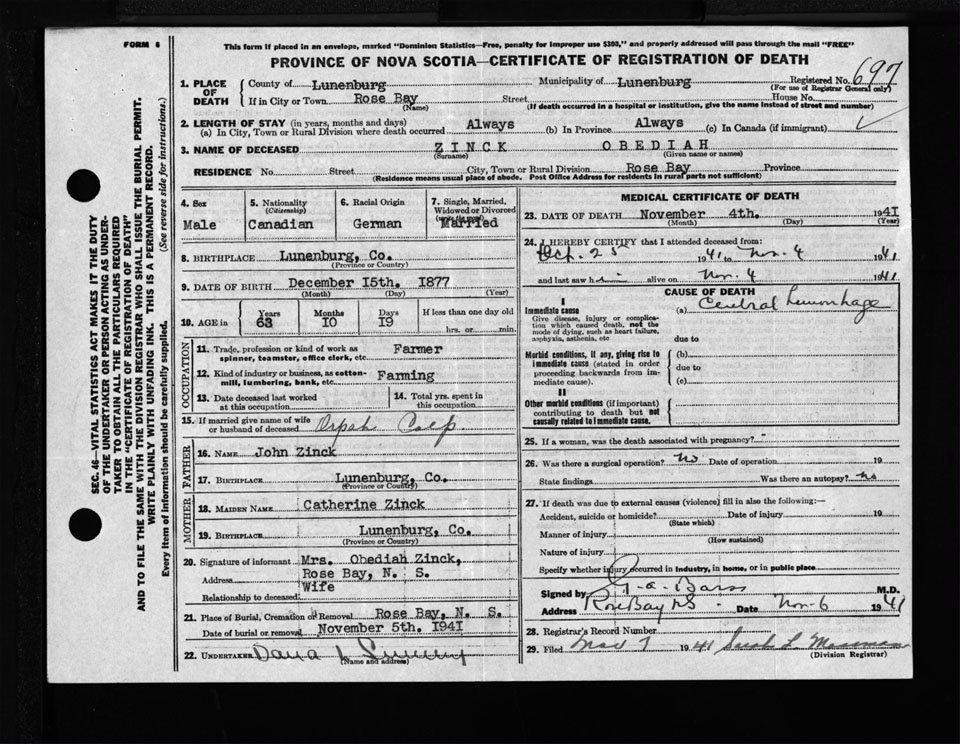 FORM 6
This form if placed in an envelope, marked "Dominion Statistics—Free, penalty for improper use $300," and properly addressed will pass through the mail "FREE"
PROVINCE OF NOVA SCOTIA—CERTIFICATE OF REGISTRATION OF DEATH
SEC. 46—VITAL STATISTICS ACT MAKES IT THE DUTY
OF THE UNDERTAKER OR PERSON ACTING AS UNDER-
TAKER TO OBTAIN ALL THE PARTICULARS REQUIRED
IN THE "CERTIFICATE OF REGISTRATION OF DEATH"
AND TO FILE THE SAME WITH THE DIVISION REGISTRAR WHO SHALL ISSUE THE BURIAL PERMIT.
WRITE PLAINLY WITH UNFADING INK. THIS IS A PERMANENT RECORD.
Every item of information should be carefully supplied. (See reverse side for instructions.)
1. PLACE OF DEATH County of Lunenburg Municipality of Lunenburg Registered No. 697
(For use of Registrar General only)
If in City or Town Rose Bay Street House No.
(Name) (If death occurred in a hospital or institution, give the name instead of street and number)
2. LENGTH OF STAY (in years, months and days)
(a) In City, Town or Rural Division where death occurred Always (b) In Province Always (c) In Canada (if immigrant)
3. NAME OF DECEASED ZINCK OBEDIAH
(Surname) (Given name or names)
RESIDENCE No. Street City, Town or Rural Division Rose Bay Province
(Residence means usual place of abode. Post Office Address for residents in rural parts not sufficient)
4. Sex 5. Nationality (Citizenship) 6. Racial Origin 7. Single, Married, Widowed or Divorced
Male Canadian German Married
8. BIRTHPLACE Lunenburg, Co.
(Province or Country)
9. DATE OF BIRTH December 15th. 1877
(Month) (Day) (Year)
10. AGE in Years Months Days If less than one day old
63 10 19 hrs. or min.
OCCUPATION
11. Trade, profession or kind of work as spinner, teamster, office clerk, etc. Farmer
12. Kind of industry or business, as cotton-mill, lumbering, bank, etc. Farming
13. Date deceased last worked at this occupation 14. Total yrs. spent in this occupation
15. If married give name of wife or husband of deceased Orpah
FATHER
16. NAME John Zinck
17. BIRTHPLACE Lunenburg, Co.
(Province or Country)
MOTHER
18. MAIDEN NAME Catherine Zinck
19. BIRTHPLACE Lunenburg, Co.
(Province or Country)
20. Signature of informant Mrs. Obediah Zinck,
Address Rose Bay, N. S.
Relationship to deceased Wife
21. Place of Burial, Cremation or Removal Rose Bay, N. S.
Date of burial or removal November 5th. 1941
22. UNDERTAKER
(Name and address)
MEDICAL CERTIFICATE OF DEATH
23. DATE OF DEATH November 4th. 1941
(Month) (Day) (Year)
24. I HEREBY CERTIFY that I attended deceased from:
Oct. 25 1941 to Nov. 4 1941
and last saw him alive on Nov. 4 1941
CAUSE OF DEATH
I
Immediate cause (a)
Give disease, injury or complica-
tion which caused death, not the
mode of dying, such as heart failure,
asphyxia, asthenia, etc due to
Morbid conditions, if any, giving rise to (b)
immediate cause (stated in order due to
proceeding backwards from im-
mediate cause). (c)
II
Other morbid conditions (if important)
contributing to death but not
causally related to immediate cause.
25. If a woman, was the death associated with pregnancy?
26. Was there a surgical operation? no Date of operation 19
State findings Was there an autopsy? no
27. If death was due to external causes (violence) fill in also the following:—
Accident, suicide or homicide? Date of injury 19
(State which)
Manner of injury
(How sustained)
Nature of injury
Specify whether injury occurred in industry, in home, or in public place
Signed by M.D.
Address Rose Bay NS Date Nov-6 1941
28. Registrar's Record Number
29. Filed 7 1941
(Division Registrar)